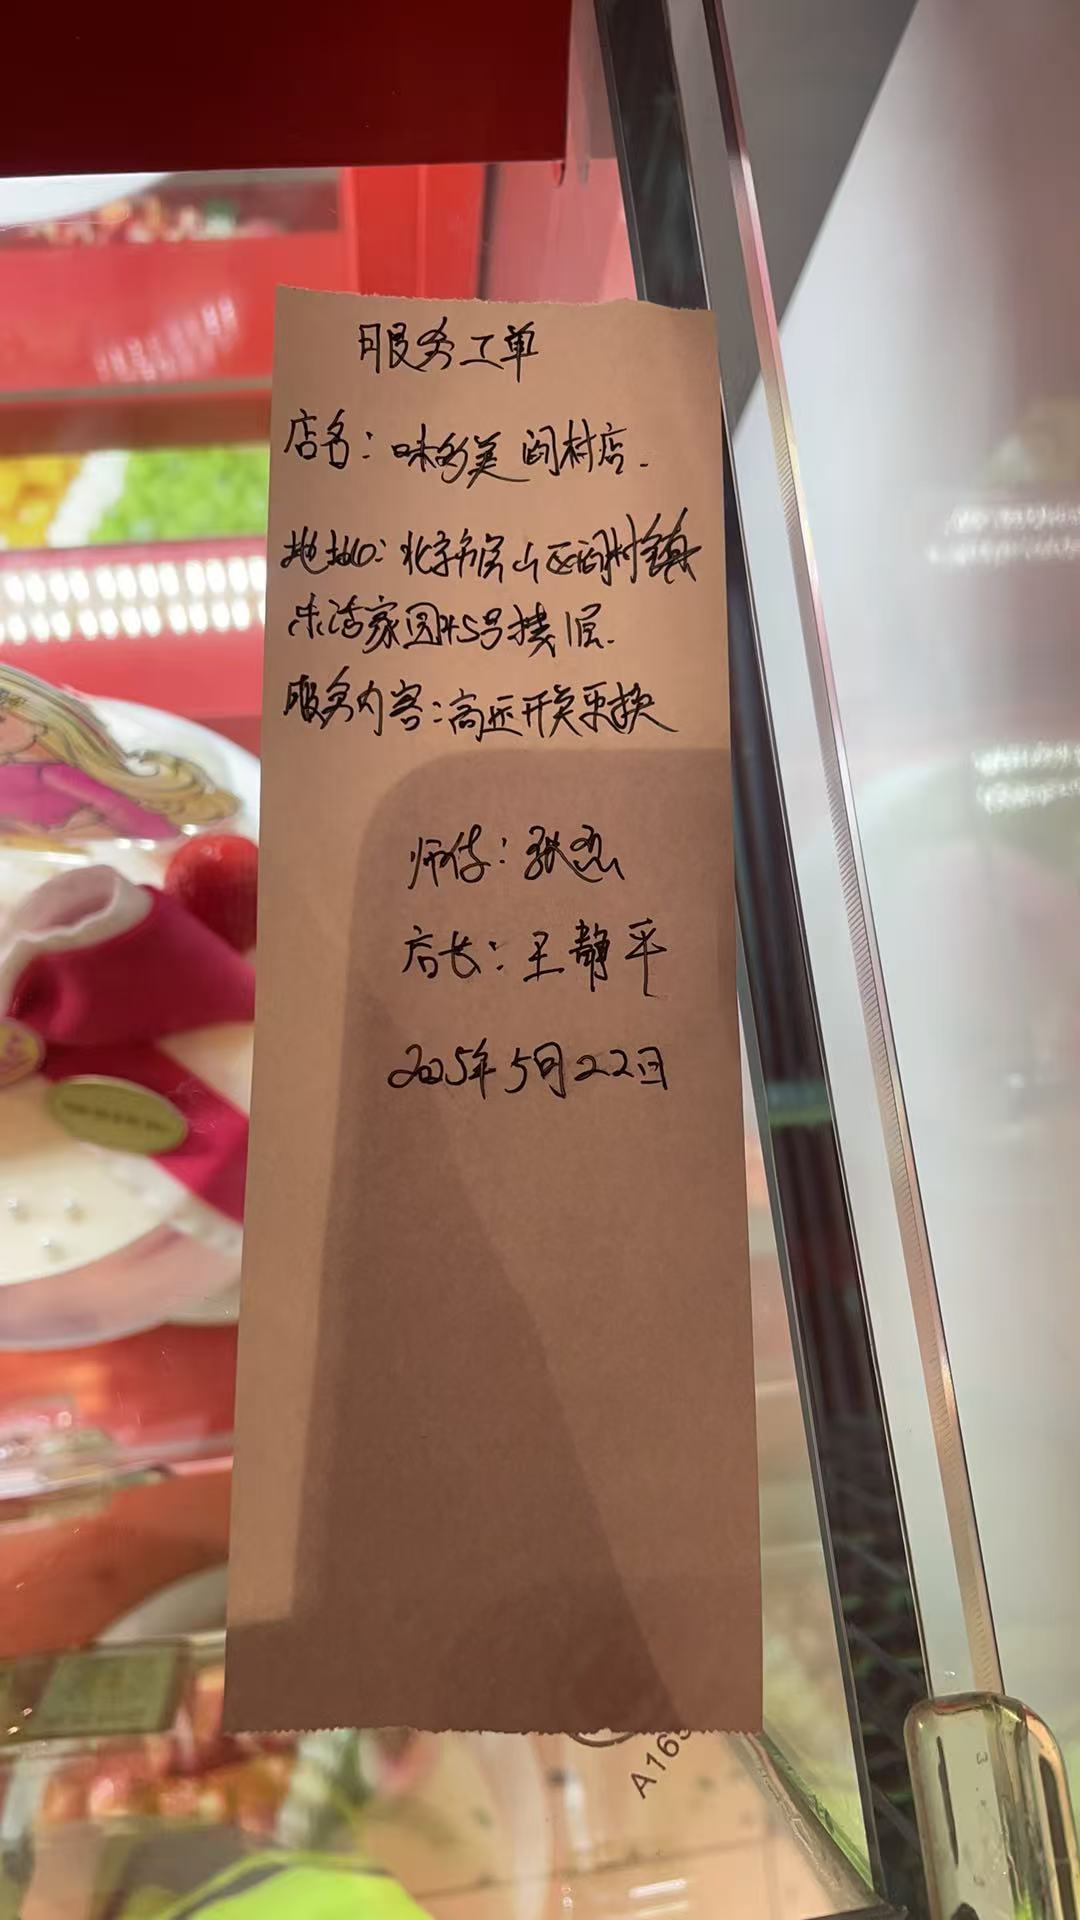 服务工单
店名：味多美 闫村店.
地址：北京市房山区闫村镇
乐活家园45号楼1层.
服务内容：高压开关更换
师傅：张杰
店长：王静平
2025年5月22日
A163